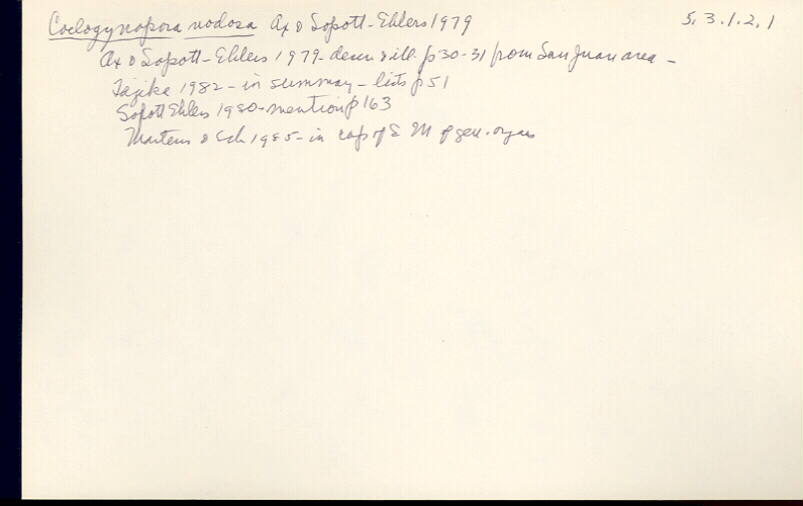 Coelogynopora nodosa Ax & Sopott-Ehlers 1979 5.3.1.2.1
Ax & Sopott-Ehlers 1979- descr & ill. p30-31 from San Juan area -
Tajika 1982 - in summary - lists p 51
Sopott Ehlers 1980- mention p 163
Martens & Sch 1985- in of gen. organs